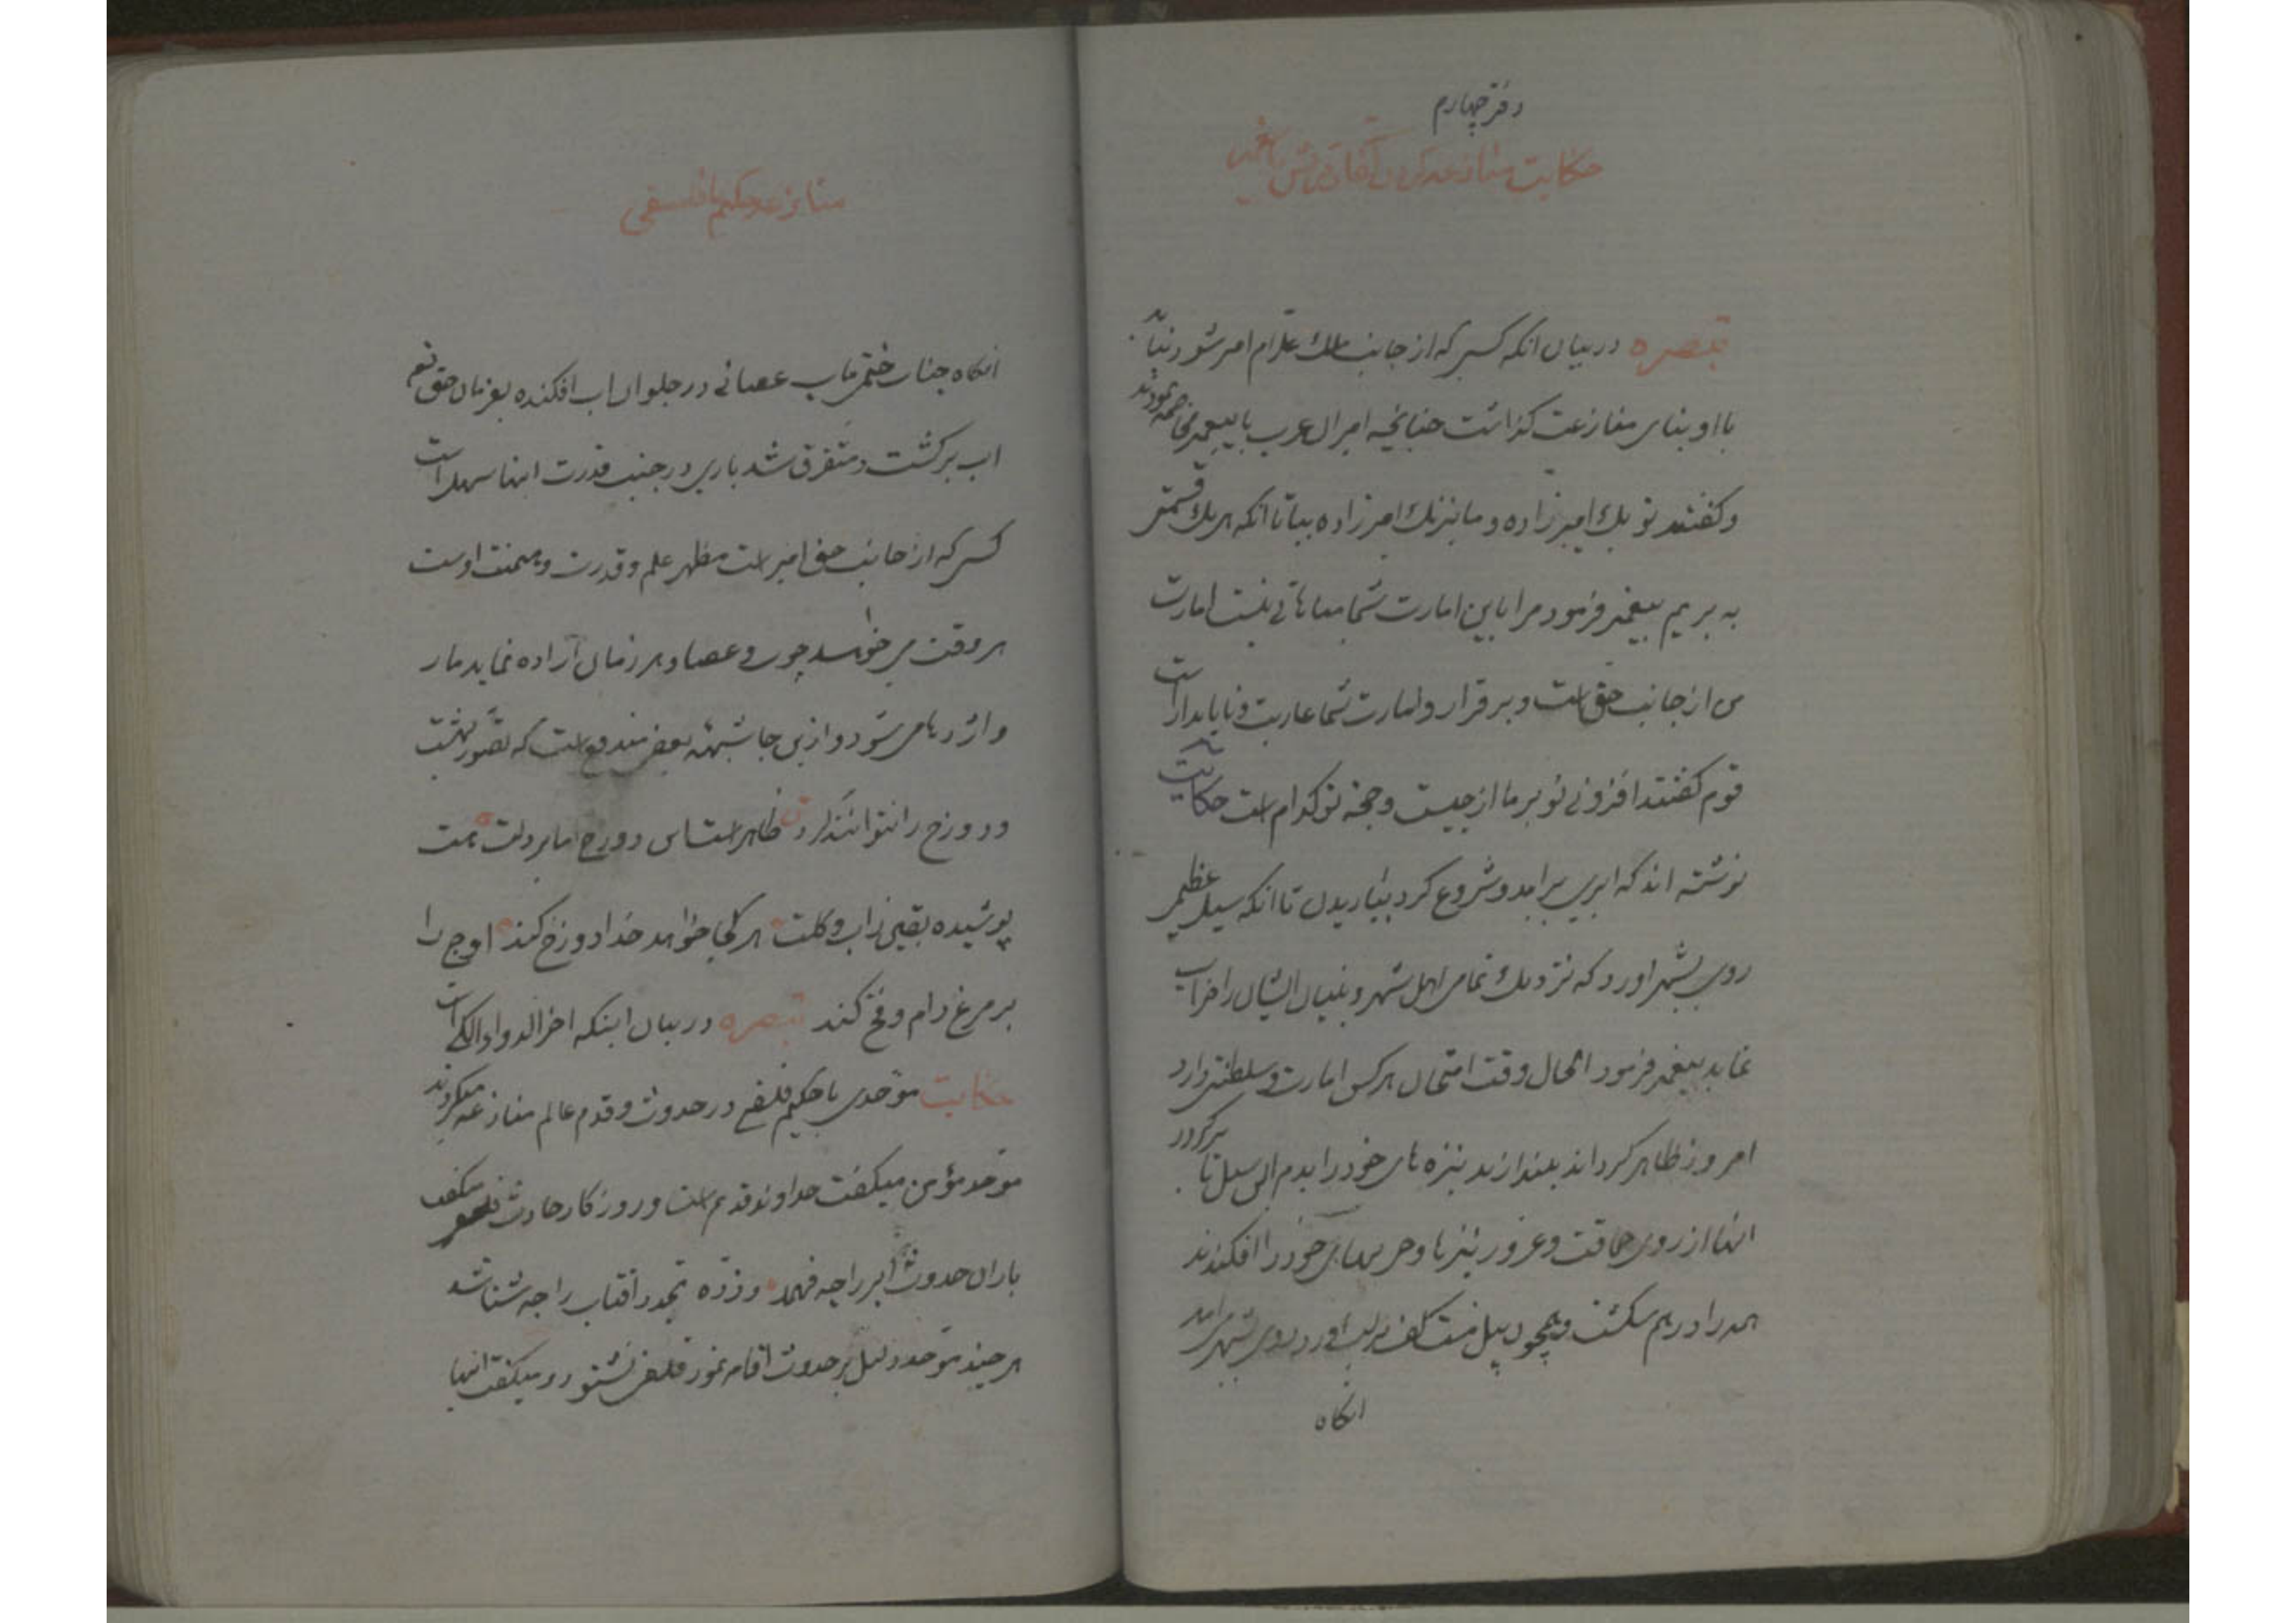 دفتر چهارم
حکایت منازعه کردن کفار قریش با پیغمبر
تبصره در بیان انکه کسی که از جانب ملک علام امیر شود نباید
با او بنای منازعت کذاشت چنانچه امیران عرب با پیغمبر مخاصمه نمودند
و کفتند تو یک امیرزاده و ما نیز یک امیرزاده بیا تا انکه هر یک قسمتی
به بریم پیغمبر فرمود مرا باین امارت شما مباهاتی نیست امارت
من از جانب حق است و برقرار و امارت شما عاریت و ناپایدار است
قوم کفتند افزونی تو بر ما از چیست و حجة تو کدام است حکایت
نوشته اند که ابری برامد و شروع کرد بباریدن تا انکه سیل عظیمی
روی بشهر اورد که نزدیک تمامی اهل شهر و بنیان ایشان را خراب
نماید پیغمبر فرمود الحال وقت امتحان هر کس امارت و سلطنتی دارد
امروز ظاهر کرداند بیندازید نیزه های خود را بدم این سیل تا برکردد
انها از روی حماقت و غرور نیزها و حربهای خود را افکندند
همه را درهم شکست و همچون پیل مست کف بر لب اورد روی بشهر میامد
انکاه
منازعه حکیم با فلسفی
انکاه جناب ختمی ماب عصائی در جلو ان اب افکنده بفرمان حق تعم
اب برکشت و متفرق شد باری در جنب قدرت اینها سهل است
کسی که از جانب حق امیر است مظهر علم و قدرت و میمنت اوست
هر وقت می خواهد چوب و عصا و هر زمان آراده نماید مار
و اژدها می شود و از این جا شبهه بعضی مندفع است که تصور بهشت
و دوزخ را نتوانند کرد ظاهر است این دوزخ اما بر دلت هست
پوشیده بقین ز اب و کلت هر کجا خواهد خدا دوزخ کند اوج را
بر مرغ دام و فخ کند تبصره در بیان اینکه اخر الدواء الکی است
حکایت موحدی با حکیم فلسفی در حدوث و قدم عالم منازعه میکردند
موحد مؤمن میکفت خداوند قدیم است و روزکار حادث فلسفی میکفت
باران حدوث ابر را چه فهمد و ذره تجدد افتاب را چه شناسد
هر چند موحد دلیل بر حدوث اقامه نمود فلسفی نشنود و میکفت انها